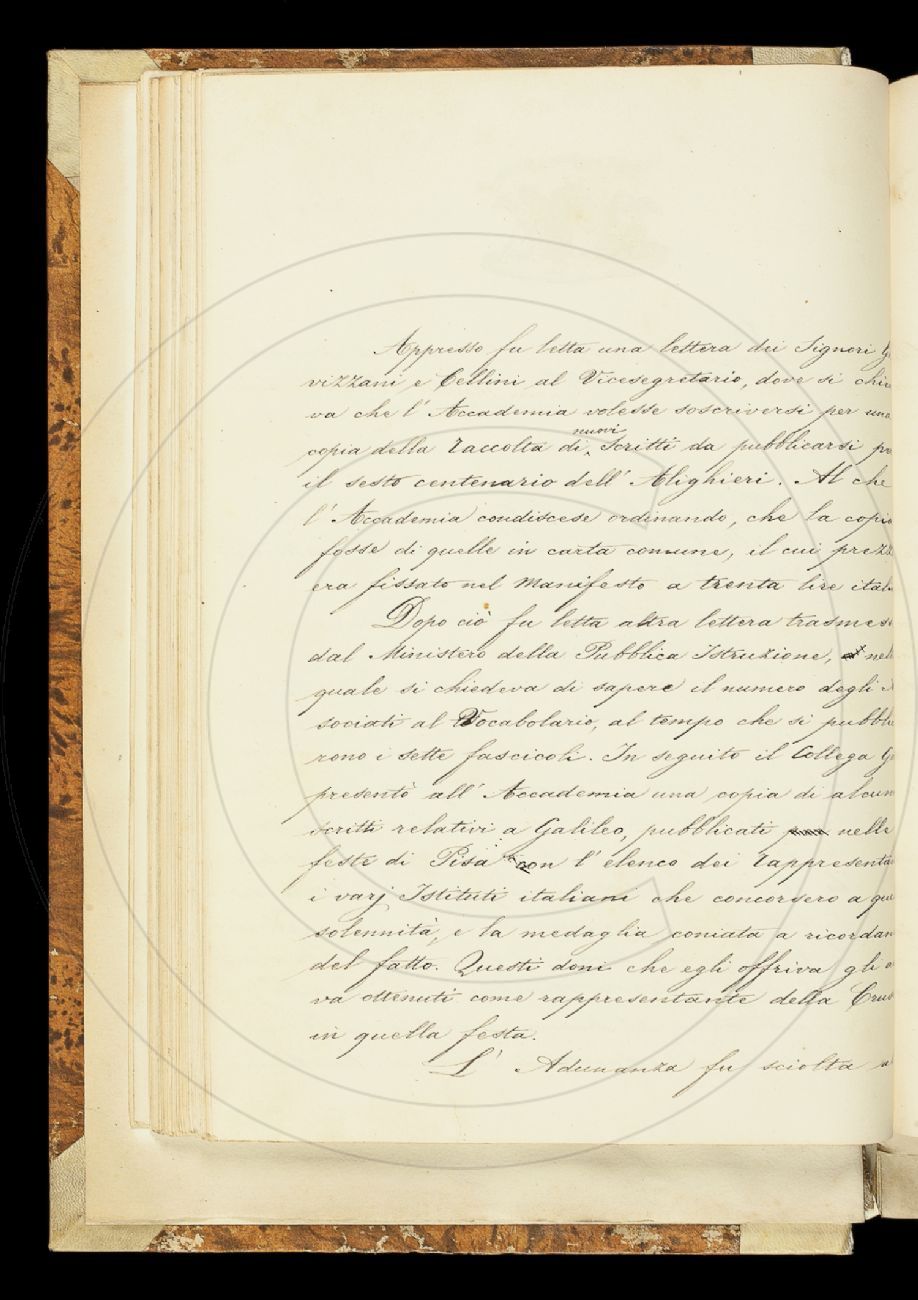 Appresso fu letta una lettera dei Signori G
vizzani e Cellini al Vicesegretario, dove si chie
va che l' Accademia volesse soscriversi per una
nuovi
copia della raccolta di Scritti da pubblicarsi pe
il sesto centenario dell' Alighieri. Al che
l' Accademia condiscese ordinando, che la copia
fosse di quelle in carta comune, il cui prezz
era fissato nel manifesto a trenta lire itali
Dopo ciò fu letta altra lettera trasmes
dal Ministero della Pubblica Istruzione, nell
quale si chiedeva di sapere il numero degli
sociati al Vocabolario, al tempo che si pubbli
rono i sette fascicoli. In seguito il Collega G
presentò all' Accademia una copia di alcun
scritti relativi a Galileo, pubblicati nelle
feste di Pisa con l' elenco dei rappresenta
i varj Istituti italiani che concorsero a que
solennità, e la medaglia coniata a ricordan
del fatto. Questi doni che egli offriva gli a
va ottenuti come rappresentante della Crus
in quella festa.
L' Adunanza fu sciolta a